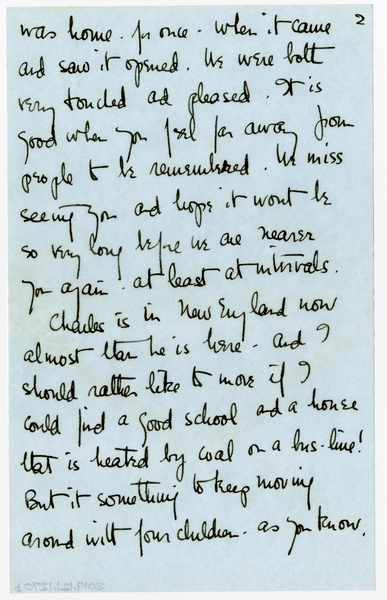 2
was home - for once - when it came
and saw it opened. We were both
very touched and pleased. It is
good when you feel far away from
people to be remembered. We miss
seeing you and hope it wont be
so very long before we are nearer
you again - at least at intervals.
Charles is in New England now
almost than he is here - and I
should rather like to move if I
could find a good school and a house
that is heated by coal on a bus-line!
But it something to keep moving
around with four children - as you know.